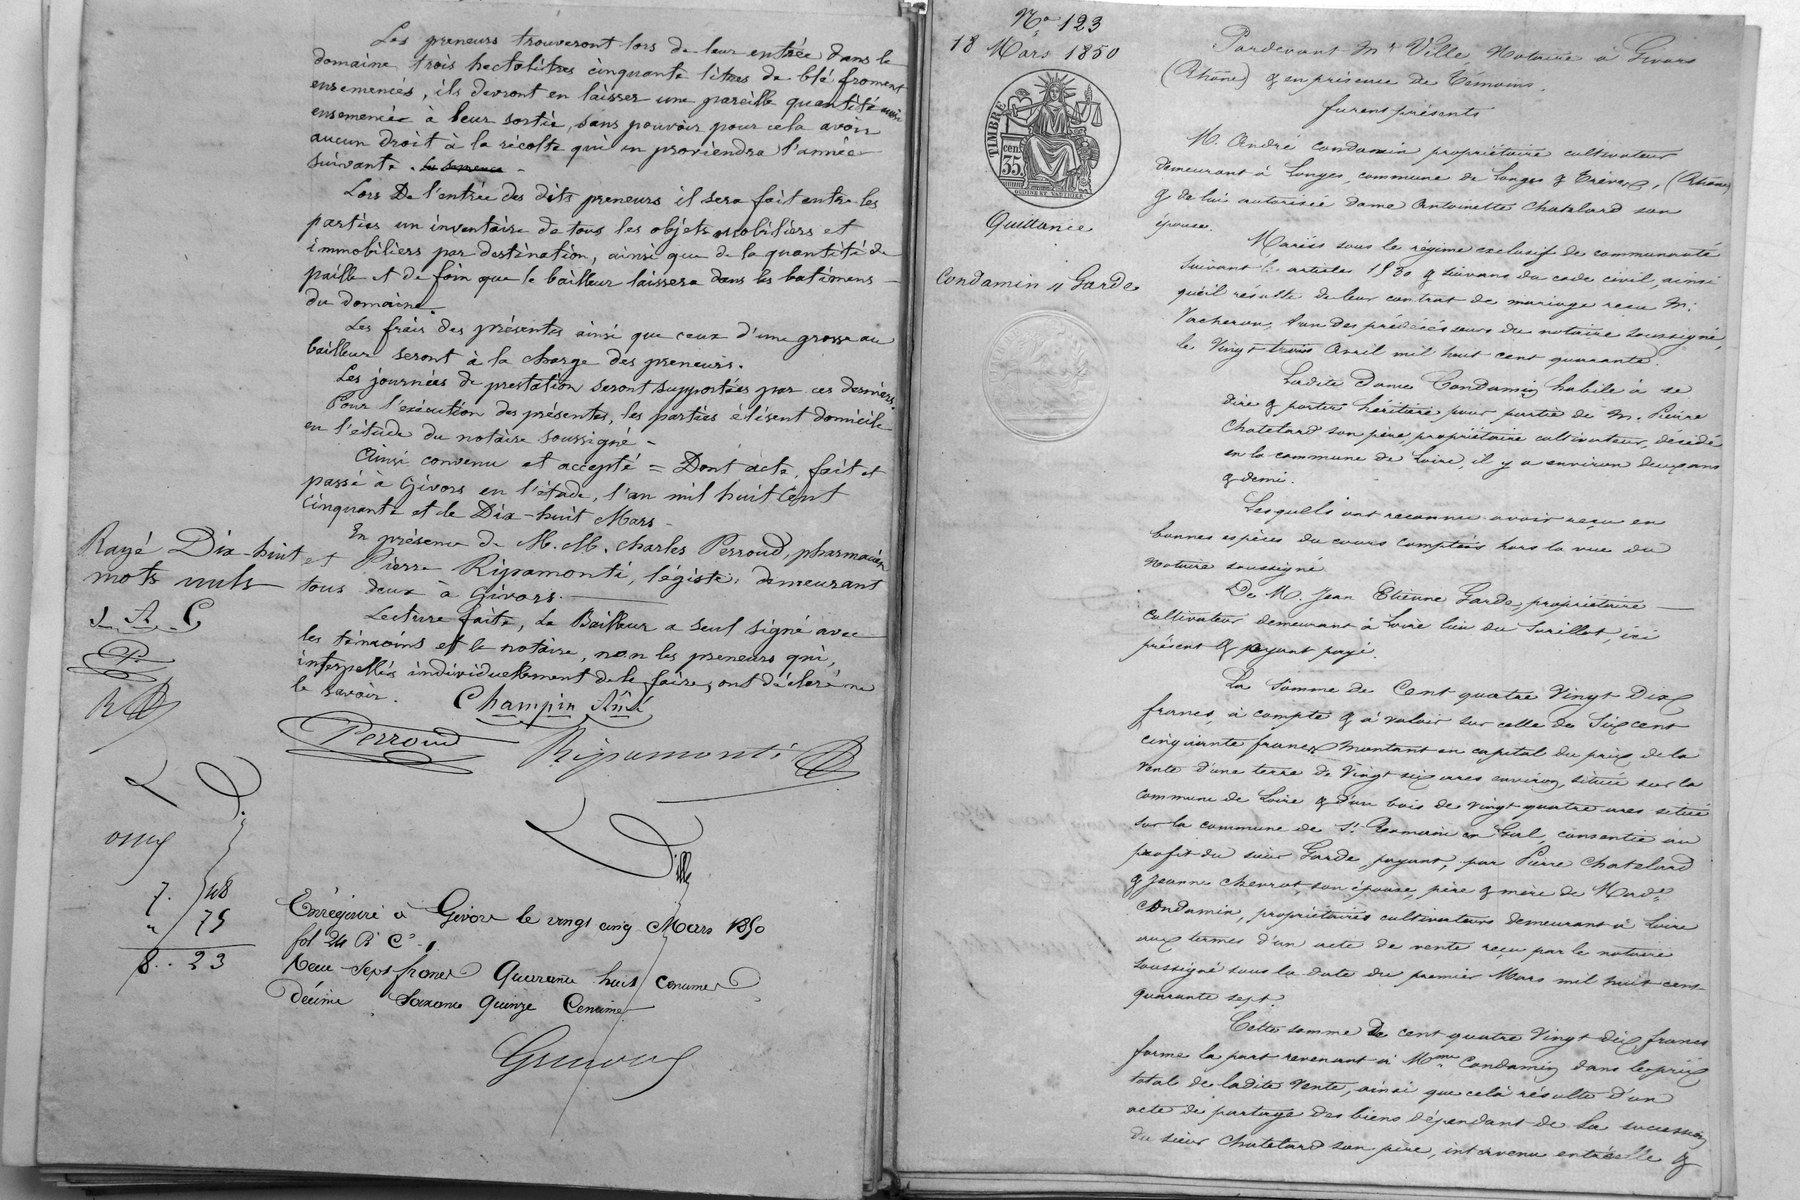 Les preneurs trouveront lors de leur entrée dans le
domaine trois hectolitres cinquante litres de blé froment
ensemencés, ils devront en laisser une pareille quantité aussi
ensemencée à leur sortie, sans pouvoir pour cela avoir
aucun droit à la récolte qui en proviendra l'année
suivante.
Lors De l'entrée des dits preneurs il sera fait entre les
parties un inventaire de tous les objets mobiliers et
immobiliers par destination, ainsi que de la quantité de
paille et de foin que le bailleur laissera dans les batimens
du domaine.
Les frais des présentes ainsi que ceux d'une grosse au
bailleur seront à la charge des preneurs.
Les journées de prestation seront supportées par ces derniers.
Pour l'exécution des présentes, les parties élisent domicile
en l'étude du notaire soussigné -
Ainsi convenu et accepté = Dont acte, fait et
passé à Givors en l'étude, l'an mil huit Cent
Cinquante et le Dix-huit Mars -
En présence de M.M. Charles Perroud, pharmacien
et Pierre Ripamonti, légiste, demeurant
tous deux à Givors.
Lecture faite, Le Bailleur a seul signé avec
les témoins et le notaire, non les preneurs qui,
interpellés individuellement de le faire, ont déclaré ne
le savoir.
Champin Aîné
Perroud
Ripamonti
Rayé Dix-huit
mots nuls
J. A. C
P.
R
7. 48
" 75
8.. 23
Enregistré à Givors le vingt cinq Mars 1850
fol 24 R° C°
Reçu Sept francs Quarante huit centimes
Décime Soixante Quinze Centimes
N° 123
18 Mars 1850
TIMBRE
35 cent
Quittance
Condamin // Garde
Pardevant Me Ville Notaire à Givors
(Rhône) & en présence de Témoins.
furent présents
M. André Condamin propriétaire cultivateur
demeurant à Longes, commune de Longes & Trèves, (Rhône)
& de lui autorisée Dame Antoinette Chatelard son
épouse.
Mariés sous le régime exclusif de communauté
suivant les article 1530 & suivans du code civil ainsi
qu'il résulte de leur contrat de mariage reçu Me
Vacheron, l'un des prédécésseurs du notaire soussigné,
le Vingt trois Avril mil huit cent quarante.
Ladite Dame Condamin habile à se
dire & porter héritière pour partie de M. Pierre
Chatelard son père, propriétaire cultivateur, décédé
en la commune de Loire, il y a environ deux ans
& demi.
Lesquels ont reconnu avoir reçu en
bonnes espèces du cours comptées hors la vue du
notaire soussigné
De M. Jean Etienne Garde, propriétaire
cultivateur demeurant à Loire lieu du ici
présent & payant payé.
La Somme de Cent quatre Vingt Dix
francs, à compte & à valoir sur celle de Six cent
cinquante francs montant en capital du prix de la
vente d'une terre de Vingt six ares environ, située sur la
commune de Loire & d'un bois de vingt quatre ares situé
sur la commune de St. Romain en Gal, consentie au
profit du sieur Garde, payant, par Pierre Chatelard
& Jeanne Chevrot, son épouse, père & mère de Made
Condamin, propriétaires cultivateurs demeurant à Loire
aux termes d'un acte de vente reçu par le notaire
soussigné sous la date du premier Mars mil huit cent
quarante sept.
Cette somme De cent quatre Vingt Dix francs
forme la part revenant à Mme Condamin dans le prix
total de ladite Vente, ainsi que celà résulte d'un
acte de partage des biens dépendant de la succession
du sieur Chatelard son père, intervenu entr'elle &